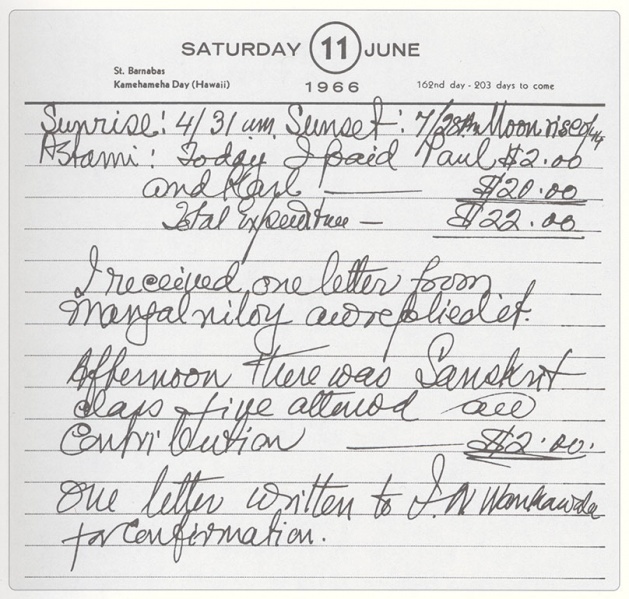 SATURDAY 11 JUNE
St. Barnabas
Kamehameha Day (Hawaii)
1966
162nd day - 203 days to come
Sunrise: 4/31 am. Sunset: 7/28 Moon rise
Astami: Today I paid Paul $2.00
and Karl — $20.00
Total Expenditure — $22.00
I received one letter from
Mangalniloy and replied it.
Afternoon there was Sanskrit
class five attend and
Contribution — $2.00.
One letter written to J. N Wankawala
for confirmation.